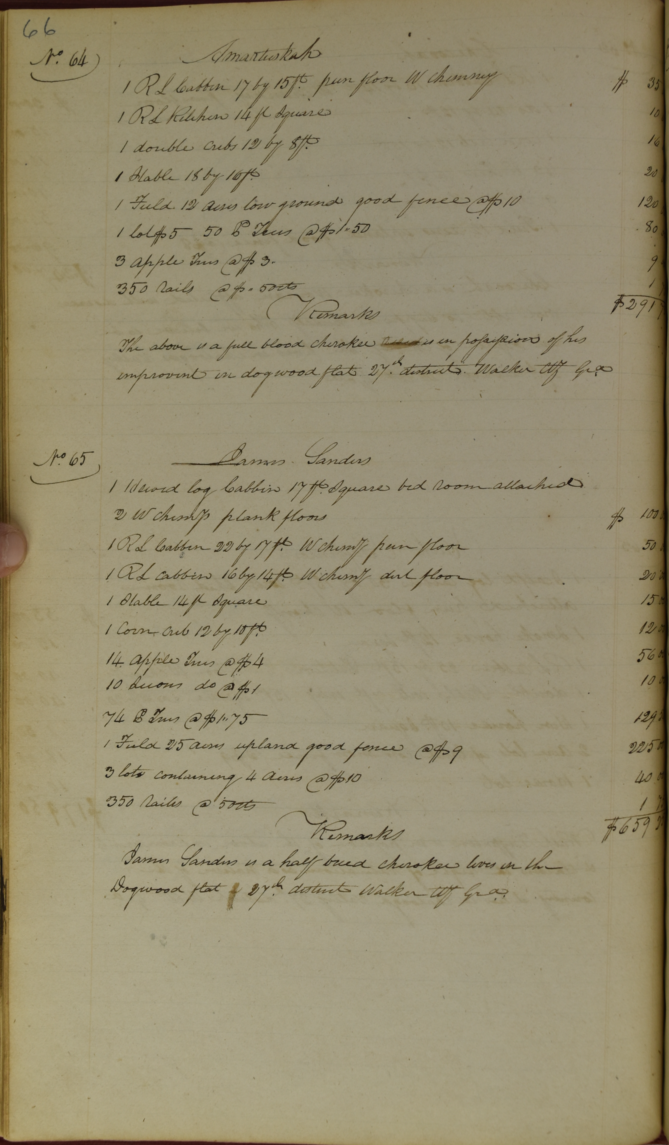 66
No. 64 Smartuskah
1 R L Cabbin 17 by 15 ft pun floor W chimney $ 35
1 R L Kitchin 14 ft Square 10
1 double cribs 12 by 8 ft 16
1 Stable 18 by 10 ft 20
1 Field 12 acres low ground good fence @ $10 120
1 lot $5 50 P Trees @ $1.50 80
3 Apple Trees @ $3. 9
350 Rails @ $. 50cts 1
Remarks $291
The above is a full blood cherokee is in possession of his
improvment in dogwood flat 27th district Walker Cty Geo
No. 65 James Sanders
1 Hewed log Cabbin 17 ft Square bed room attached
2 W chimys plank floors $ 100
1 R L Cabbin 22 by 17 ft W chimy pun floor 50
1 R L Cabbin 16 by 14 ft W chimy dirt floor 20
1 Stable 14 ft Square 15
1 Corn crib 12 by 10 ft 12
14 apple Trees @ $4 56
10 do @ $1 10
74 P Trees @ $1.75 129
1 Field 25 acres upland good fence @ $9 225
3 lots containing 4 Acres @ $10 40
350 rails @ 50cts 1
Remarks $659
James Sanders is a half breed cherokee lives in the
Dogwood flat 27th district Walker Cty Geo